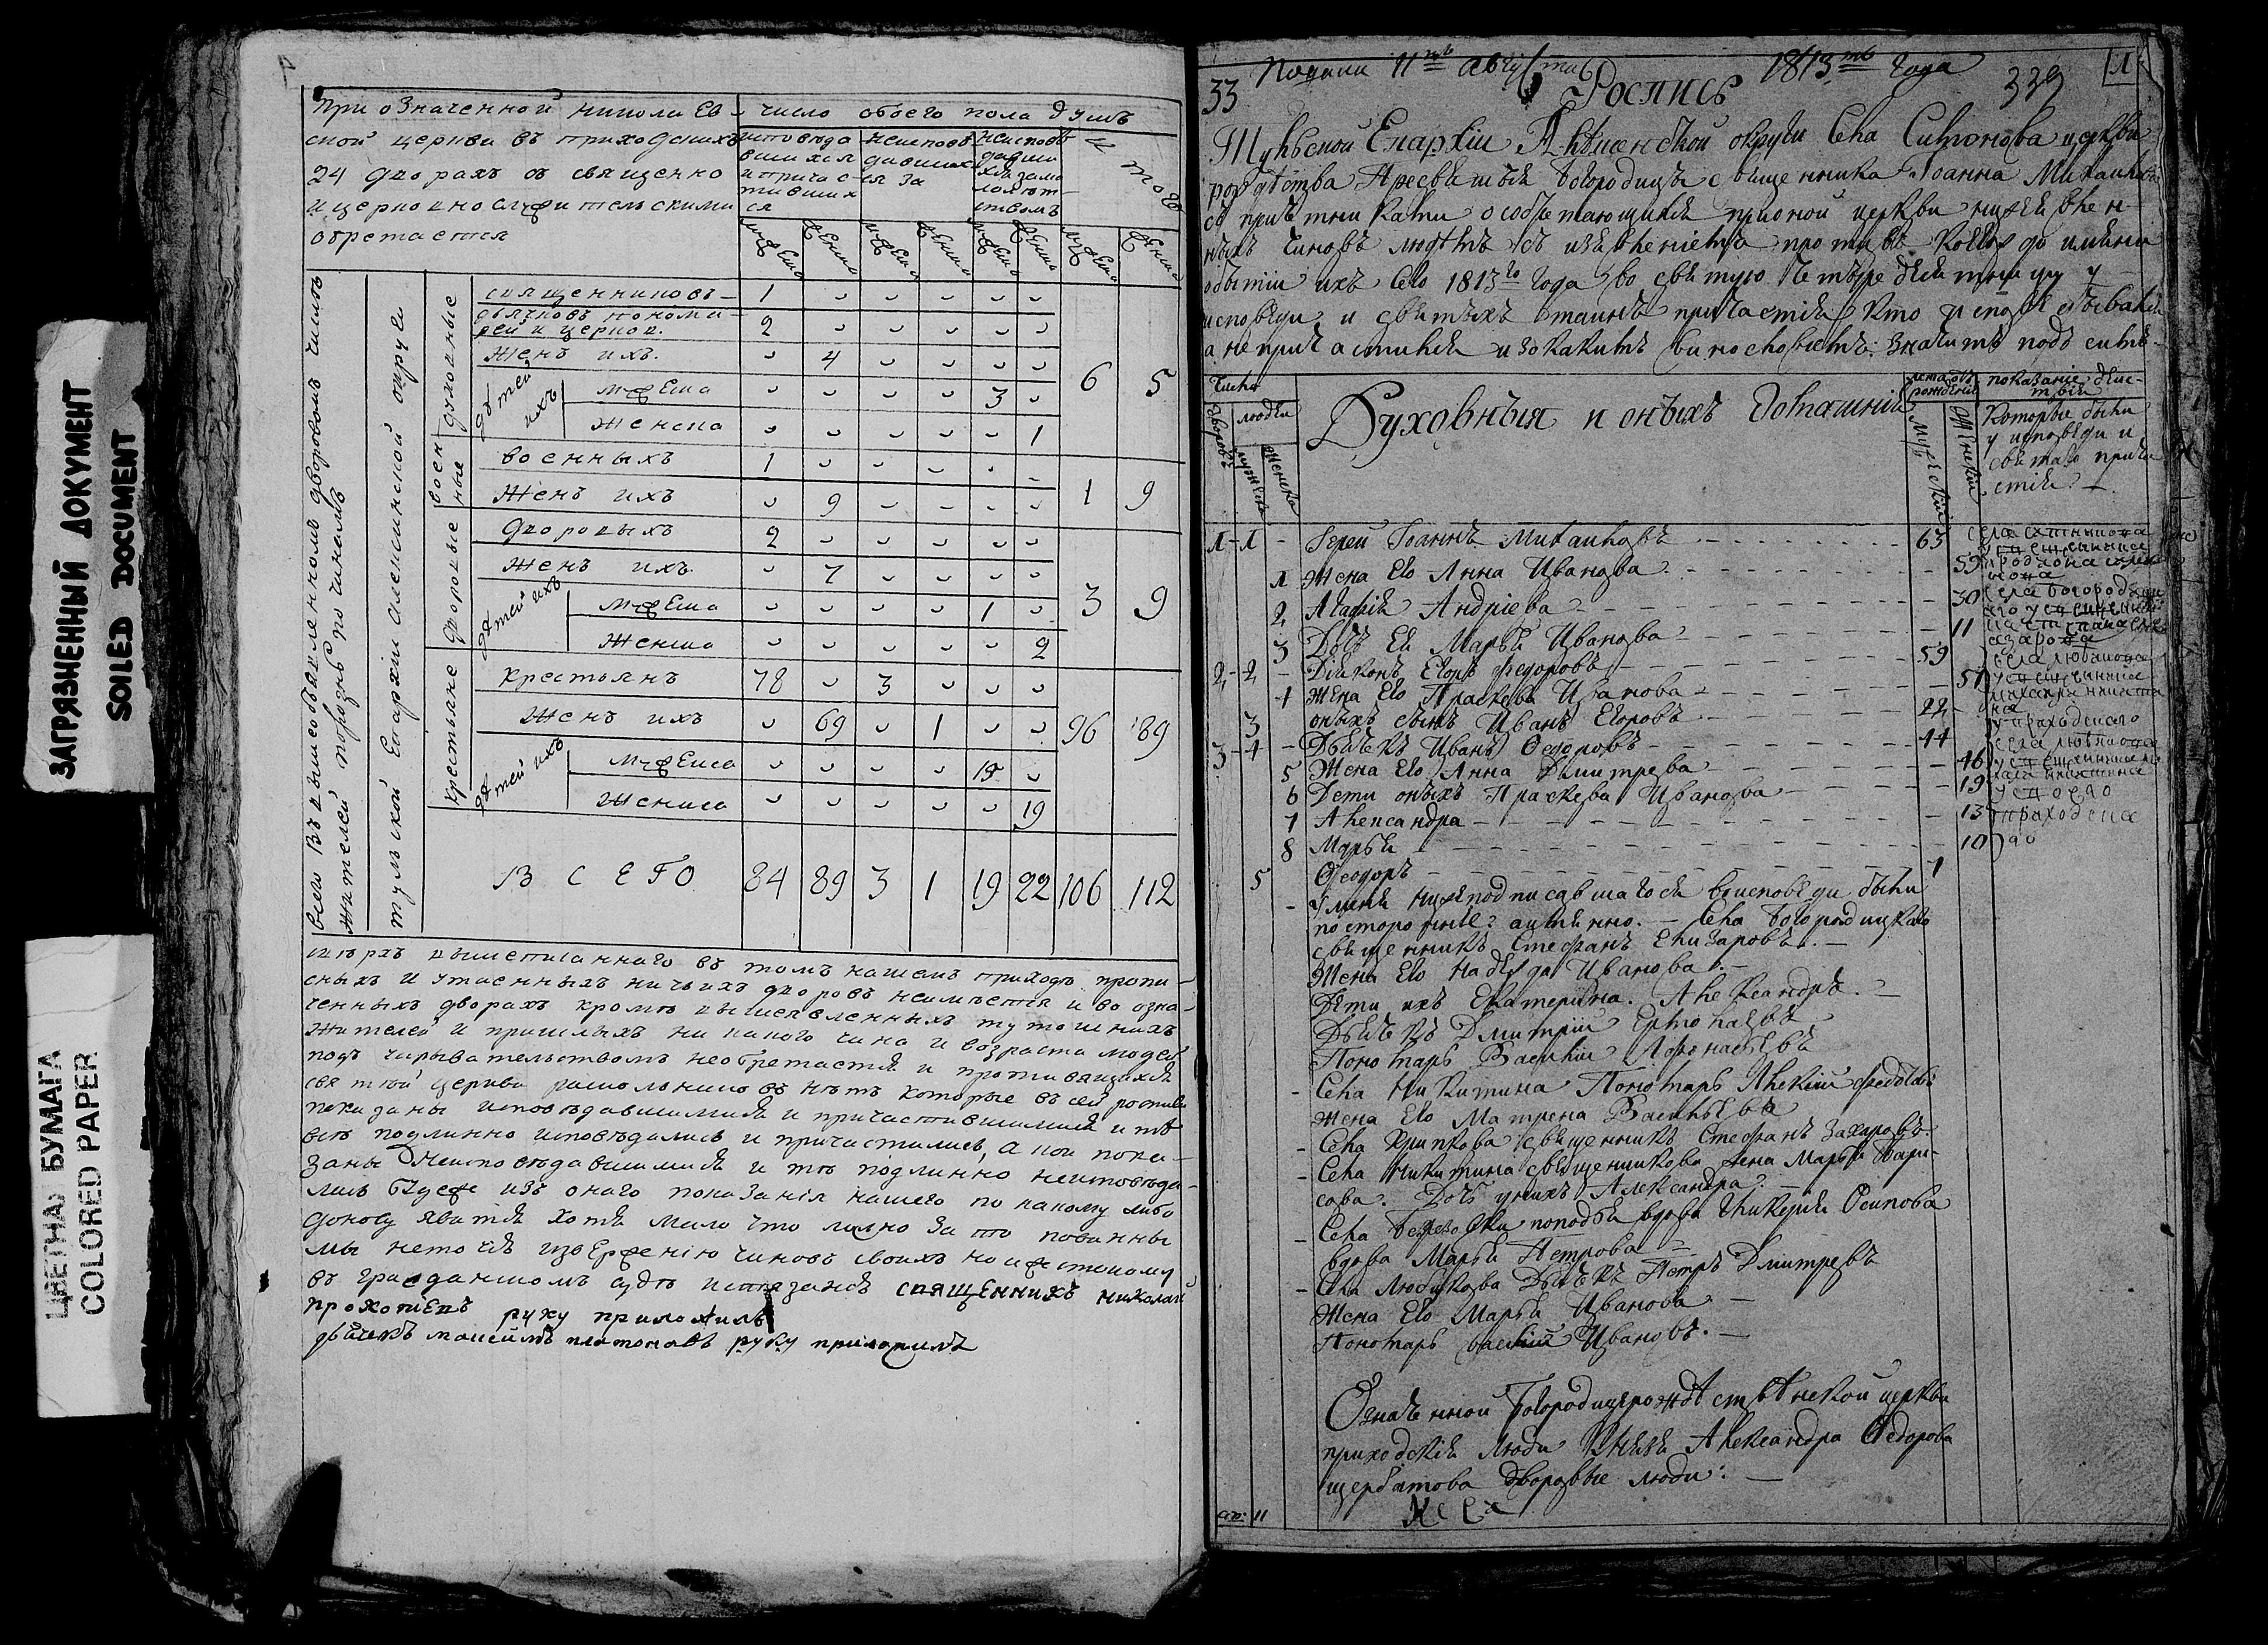 ЗАГРЯЗНЕННЫЙ ДОКУМЕНТ
SOILED DOCUMENT
ЦВЕТНАЯ БУМАГА
COLORED PAPER
при означенной николаев-
ской церкви въ приходскихъ
24 дворахъ съ священно
и церковнослужительскими
обретается
число обоего пола душъ
исповѣдавшихся и причастившихся
неисповѣдавшихся за
неисповѣдавшихся за малолѣтствомъ
итого
мужеска женска мужеска женска мужеска женска мужеска женска
всего въ вышеобъявленномъ дворовомъ числѣ
жителей порознь по чинамъ
тульской Епархіи алексинской округи
духовные
священниковъ – 1
дьячковъ пономарей и церков. 2
женъ ихъ. 4
дѣтей ихъ мужеска 3
женска 1
6 5
военные
военныхъ 1
женъ ихъ 9
1 9
дворовые
дворовыхъ 2
женъ ихъ. 7
дѣтей ихъ мужеска 1
женска 2
3 9
крестьяне
крестьянъ 78 3
женъ ихъ 69 1
дѣтей ихъ мужеска 15
женска 19
96 89
ВСЕГО 84 89 3 1 19 22 106 112
вышеписаннаго въ томъ нашемъ приходѣ пропи-
сныхъ и утаенныхъ ничьихъ дворовъ неимѣется и во озна-
ченныхъ дворахъ кромѣ вышеявленныхъ тутошнихъ
жителей и пришлыхъ ни какого чина и возраста людей
подъ укрывательствомъ необретается и противящихся
святой церкви раскольниковъ нѣтъ которые въ сей росписи
показаны исповѣдавшимися и причастившимися и тѣ
всѣ подлинно исповѣдались и причастились, а кои пока-
заны неисповѣдавшимися и тѣ подлинно неисповѣда-
лись буде изъ онаго показанія нашего по какому либо
доносу явится хотя мало что ложно за то повинны
мы неточію изверженію чиновъ своихъ но и жестокому
въ гражданскомъ судѣ истязанію священникъ николай
прокопіевъ руку приложилъ
дьячекъ моисей платоновъ руку приложилъ
Подана 11го августа 1813го года
33 Роспись 339 1
Тульской Епархіи Алексинской округи села Симонова церкви
рождества Пресвятыя Богородицы священника Іоанна Михайлова
съ причетниками о обретающихся прионой церкви нижеявлен-
ныхъ чиновъ людѣхъ съ изъявленіемъ противъ коегождо имяни
о бытіи ихъ сего 1813го года во святую четыредесятницу у
исповеди и святыхъ таинъ причастія кто исповедывался
а не причастился и за какимъ винословіемъ: значитъ подъ симъ.
число
дворовъ людей
мужеска женска
Духовныя и оныхъ домашніи
лета отъ рожденія
мужеска женска
показаніе дей-
ствія
Которые были
у исповеди и
святаго прича
стія
1 – 1 – Іерей Іоаннъ Михайловъ 63
1 жена его Анна Иванова 59
2 Агафія Андріева 30
3 Дочь ея Марья Иванова 11
2 – 2 – Діаконъ Егоръ Федоровъ 59
4 жена его Прасковья Иванова 51
3 оныхъ сынъ Иванъ Егоровъ 22
3 – 4 – Дьячекъ Иванъ Федоровъ 44
5 жена его Анна Дмитрева 46
6 Дети оныхъ Праскева Иванова 19
7 Александра 13
8 Марья 10
5 Феодоръ 1
У меня нижеподписавшагося виисповеди были
посторонніе: аимянно. – Села Богородицкаго
священникъ Стефанъ Елизаровъ. –
Жена его Надежда Иванова. –
Дети ихъ Екатерина. Александръ. –
Дьячекъ Дмитрій Ермолаевъ
Пономарь Василій Афонасьевъ
– Села Никитина Пономарь Алексій Федотовъ
жена его Матрена Васильева
– Села Хрипкова священникъ Стефанъ Захаровъ.
– Села Никитина священникова жена Марья Бари-
сова. Дочь уныхъ Александра. –
– Села попадья вдова Гликерія Осипова
вдова Марья Петрова –
– Села Любикова Дьячекъ Петръ Дмитревъ
Жена его Марья Иванова –
Пономарь Василій Ивановъ. –
Означенной Богородицерождественской церкви
приходскія люди Князя Александра Федорова
щербатова дворовые люди: –
11